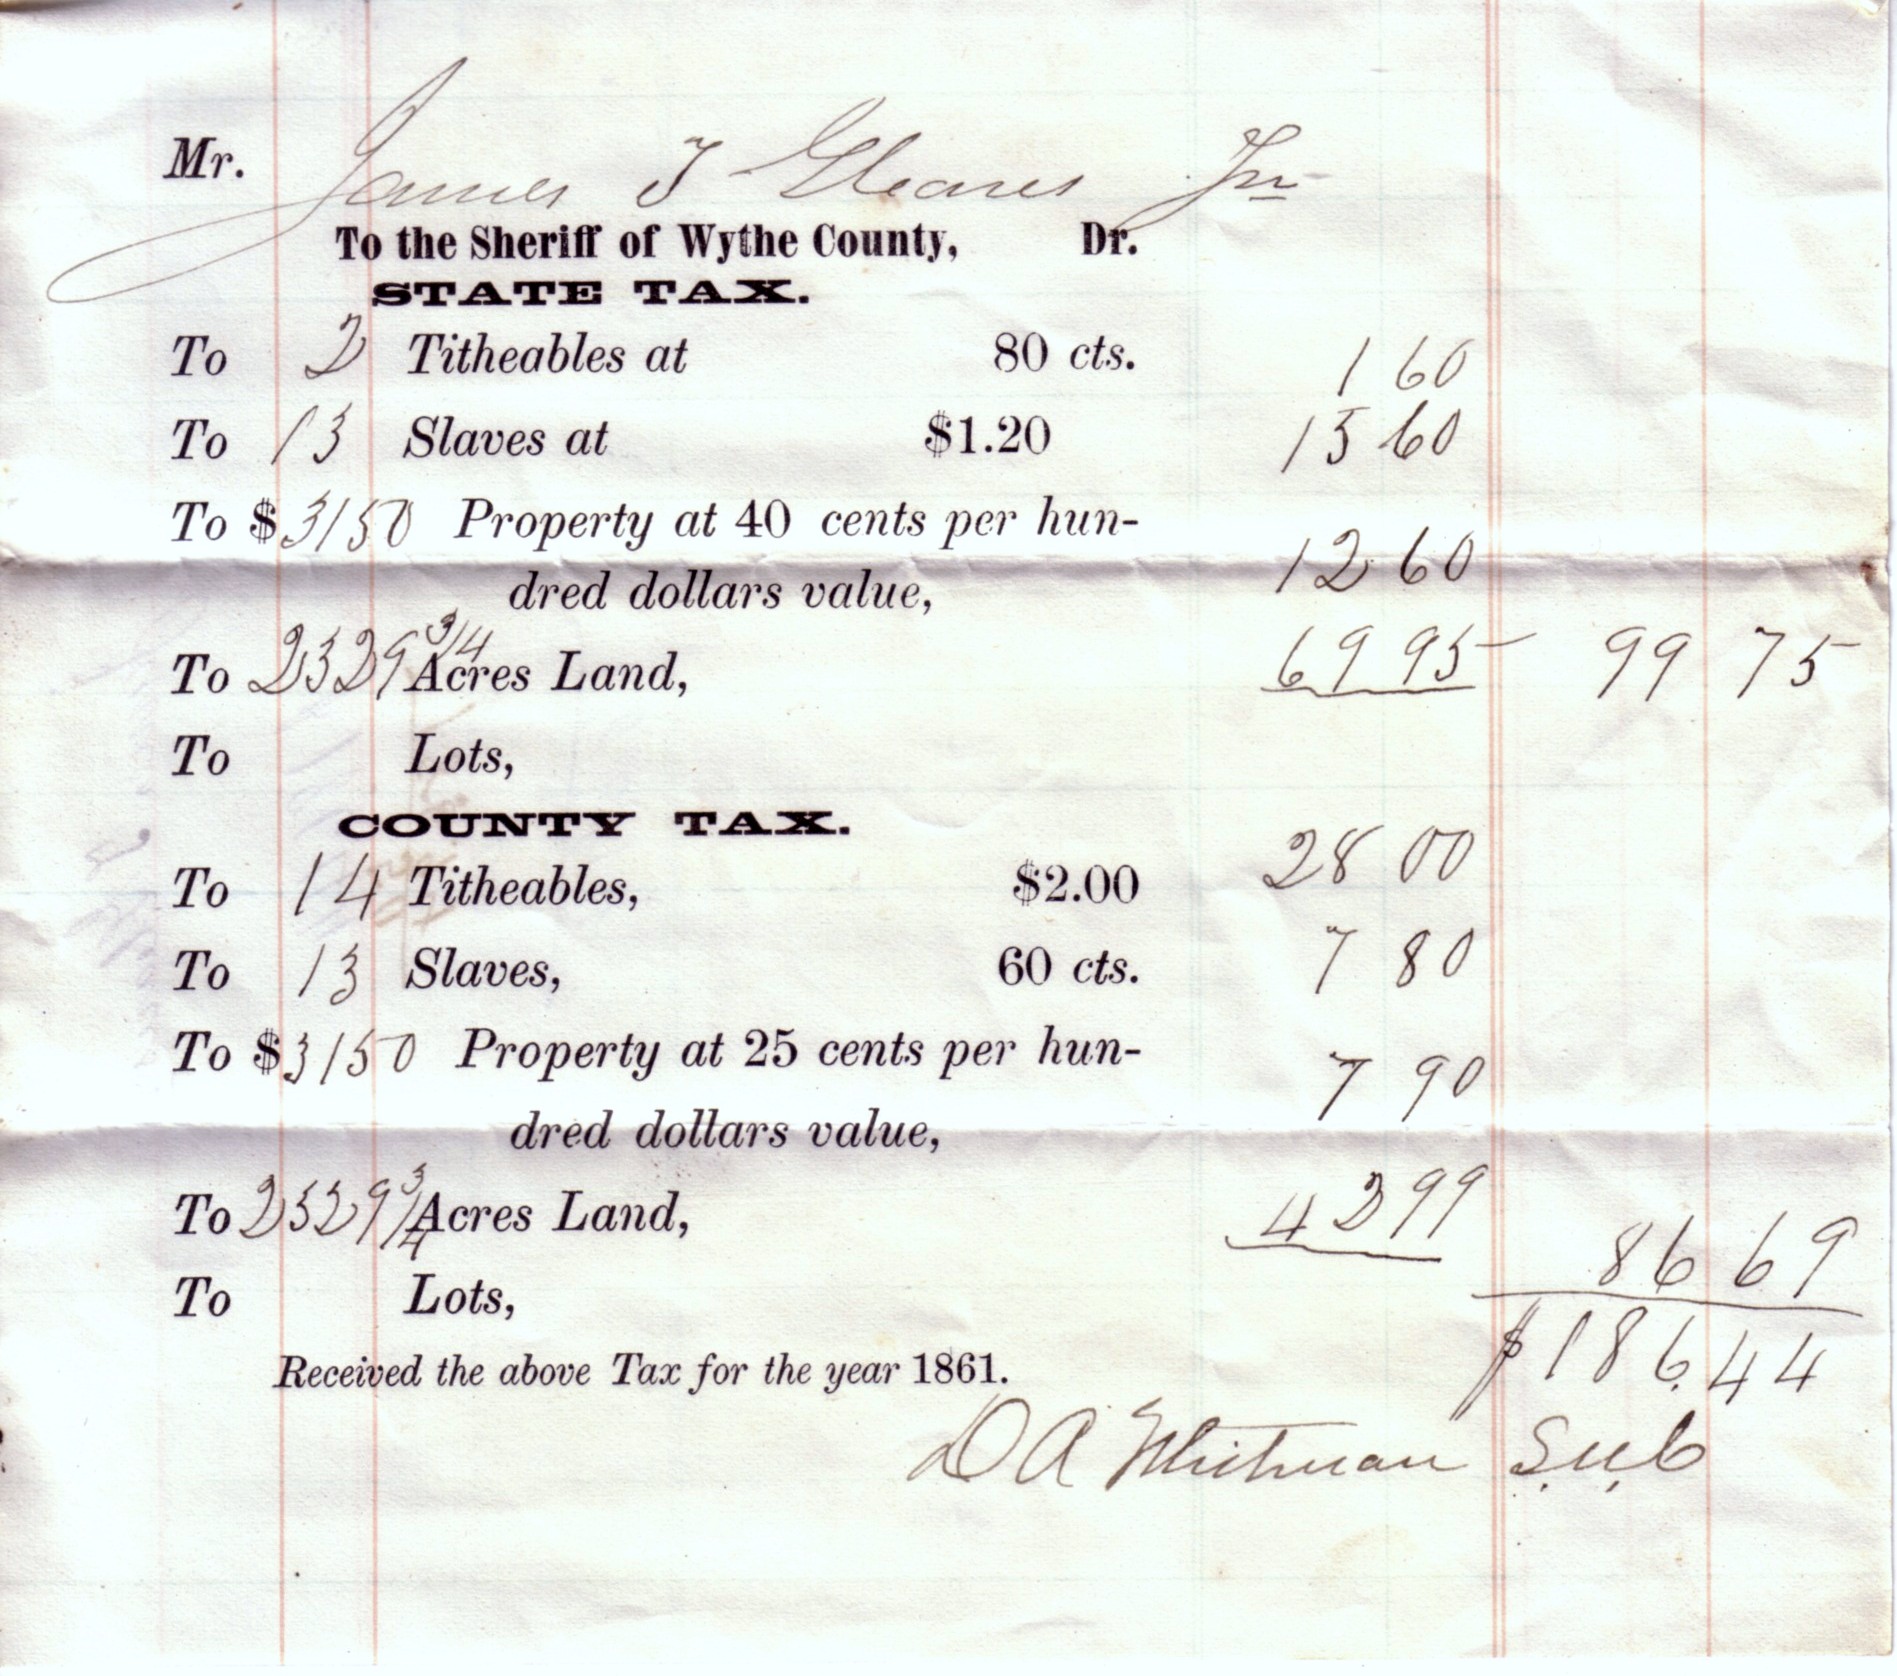 Mr. James T Gleaves Jnr
To the Sheriff of Wythe County, Dr.
STATE TAX.
To 2 Titheables at 80 cts. 1 60
To 13 Slaves at $1.20 15 60
To $3150 Property at 40 cents per hun-
dred dollars value, 12 60
To 2329 3/4 Acres Land, 69 95 99 75
To Lots,
COUNTY TAX.
To 14 Titheables, $2.00 28 00
To 13 Slaves, 60 cts. 7 80
To $3150 Property at 25 cents per hun-
dred dollars value, 7 90
To 2329 3/4 Acres Land, 42 99 86 69
To Lots,
$186.44
Received the above Tax for the year 1861.
D A Whitman